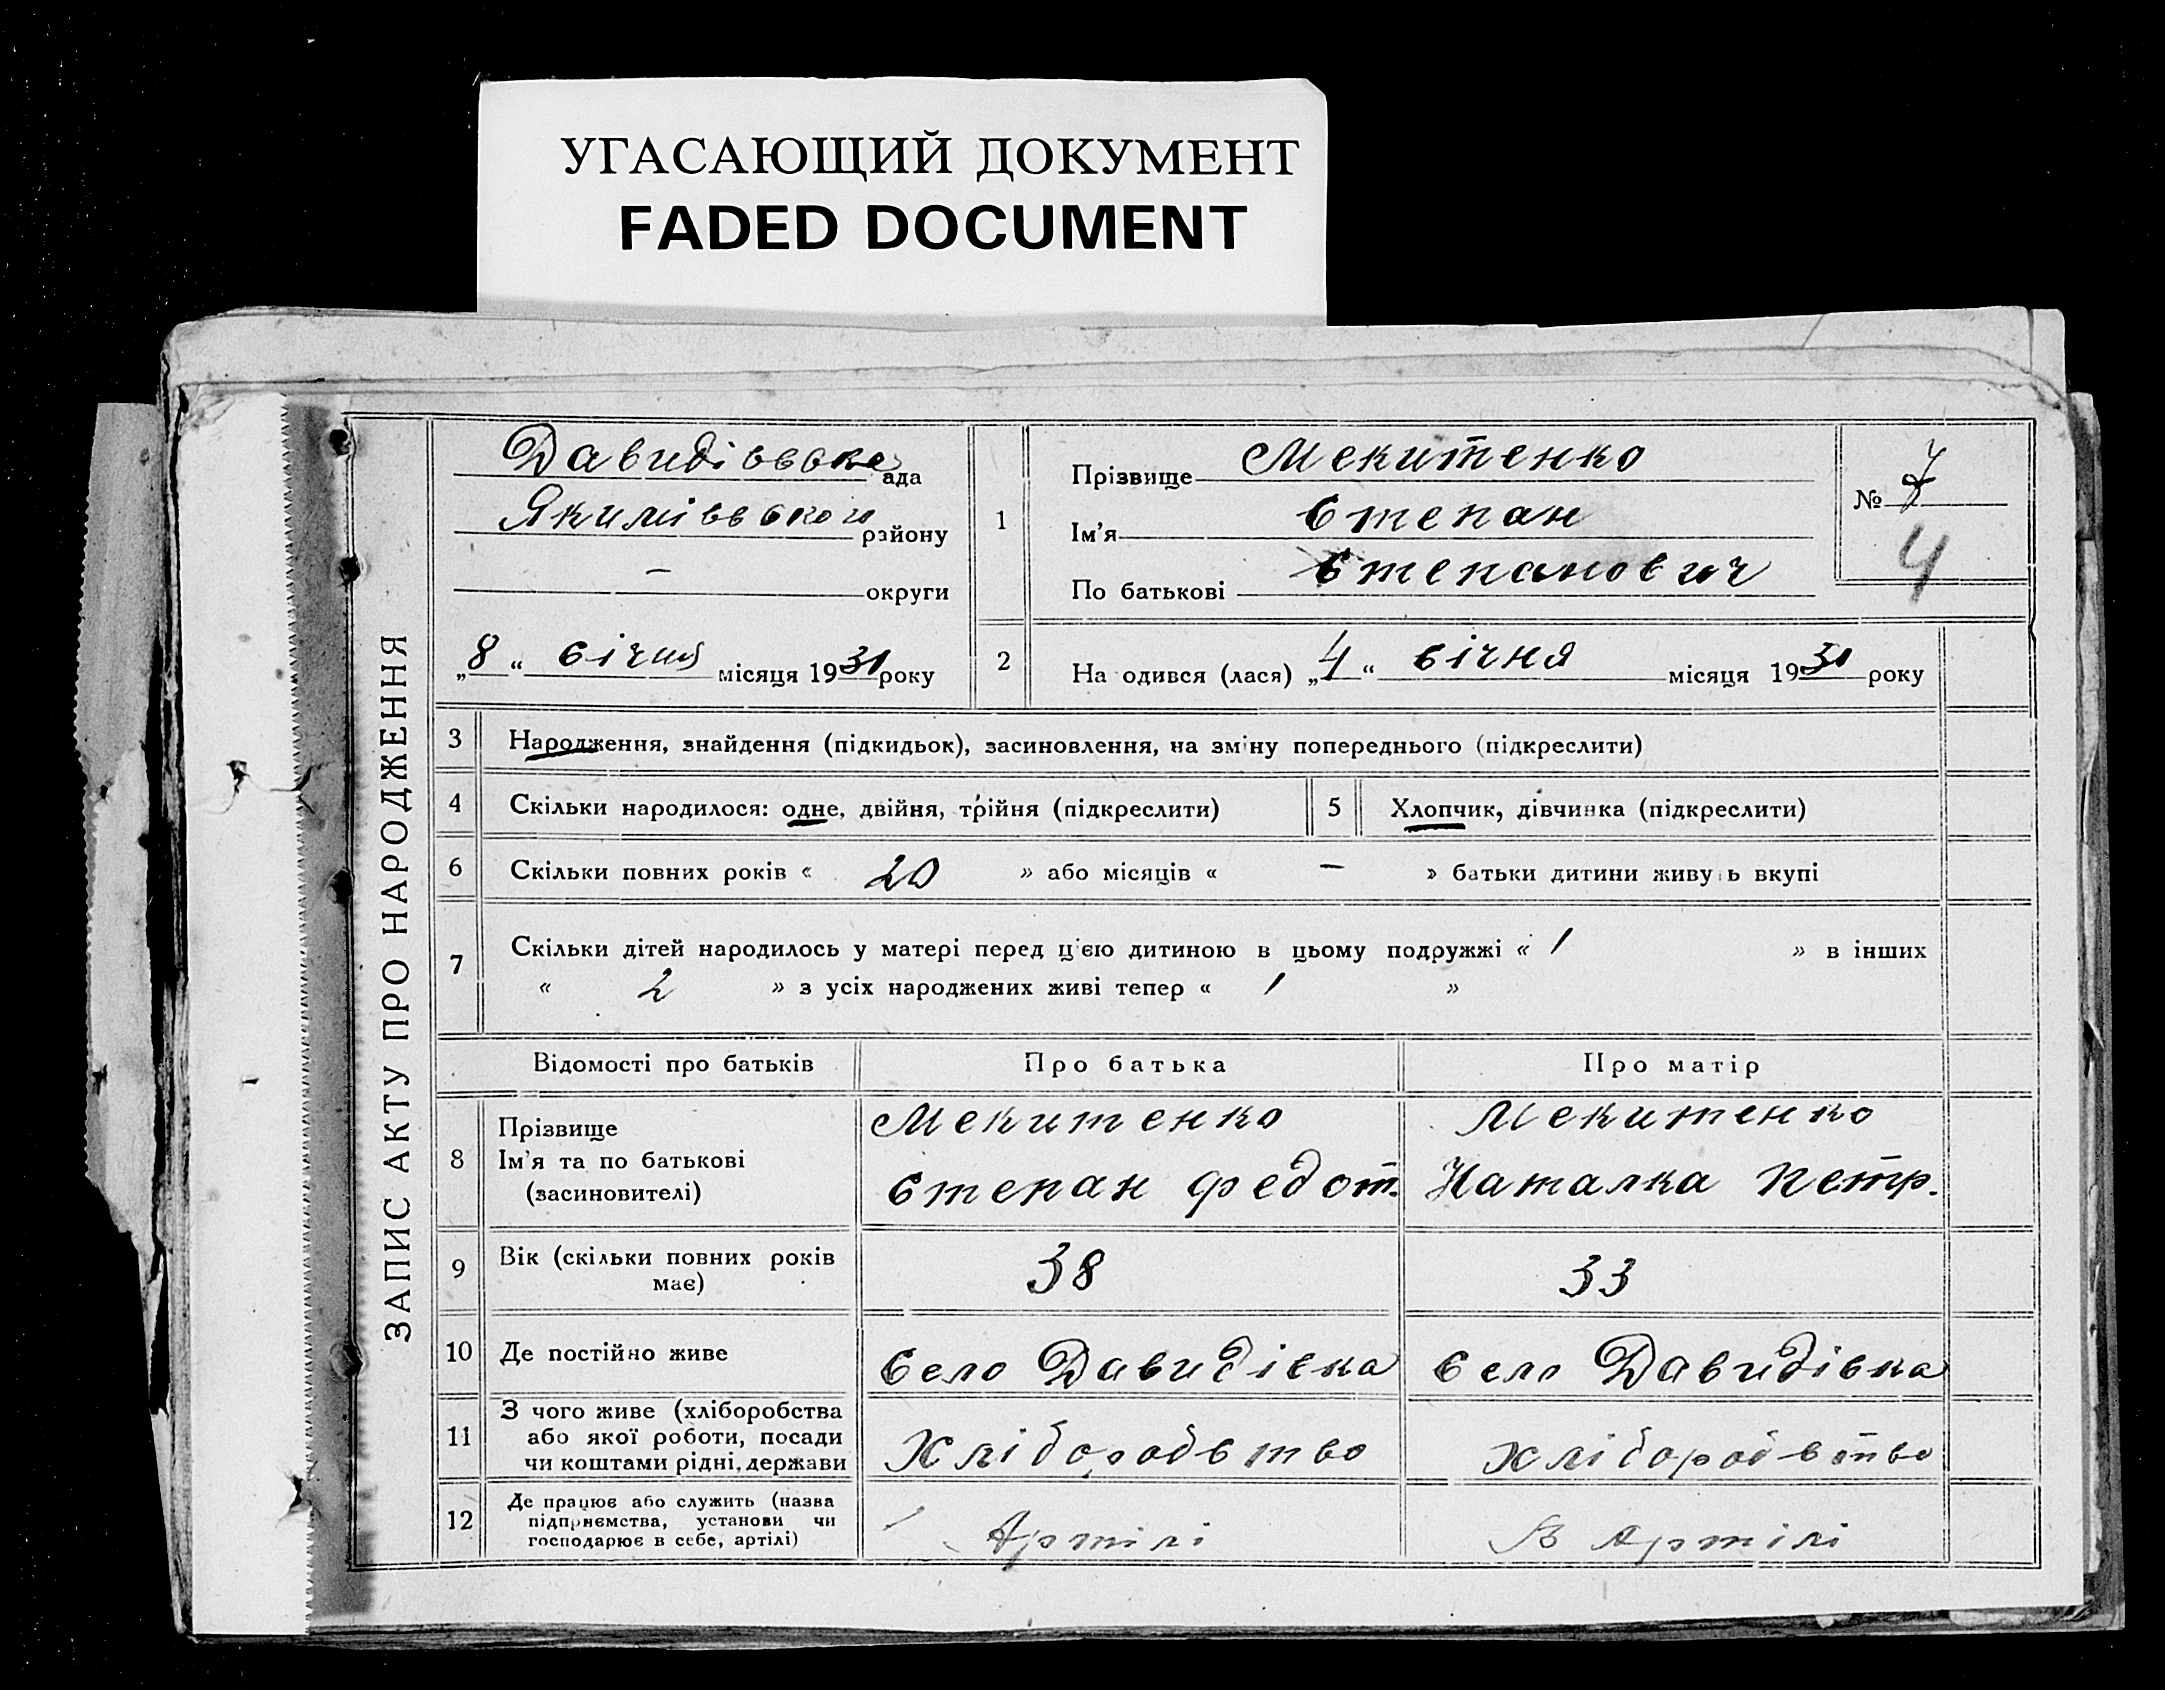 УГАСАЮЩИЙ ДОКУМЕНТ
FADED DOCUMENT
ЗАПИС АКТУ ПРО НАРОДЖЕННЯ
Давидівське ада
Якимівського району
— округи
„8“ січня місяця 1931 року
1
Прізвище Мекитенко
Ім'я Степан
По батькові Степанович
№ 7
4
2
На одився (лася) „4“ січня місяця 1931 року
3 Народження, знайдення (підкидьок), засиновлення, на зміну попереднього (підкреслити)
4 Скільки народилося: одне, двійня, трійня (підкреслити) 5 Хлопчик, дівчинка (підкреслити)
6 Скільки повних років « 20 » або місяців « — » батьки дитини живуть вкупі
7 Скільки дітей народилось у матері перед ц'єю дитиною в цьому подружжі « 1 » в інших
« 2 » з усіх народжених живі тепер « 1 »
Відомості про батьків Про батька Про матір
8 Прізвище
Ім'я та по батькові
(засиновителі)
Мекитенко
Степан Федот.
Мекитенко
Наталка Петр.
9 Вік (скільки повних років
має)
38 33
10 Де постійно живе Село Давидівка Село Давидівка
11 З чого живе (хліборобства
або якої роботи, посади
чи коштами рідні, держави
Хліборобство Хліборобство
12 Де працює або служить (назва
підприємства, установи чи
господарює в себе, артілі)
Артілі В Артілі